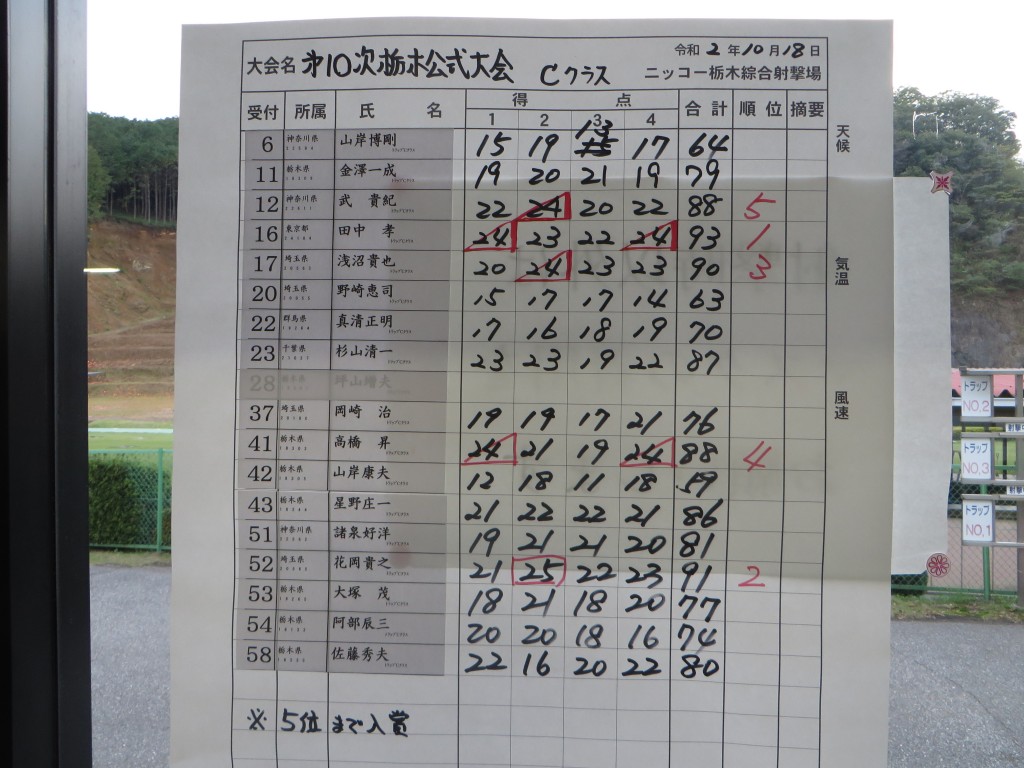 令和 2 年 10 月 18 日
大会名 第10次栃木公式大会 Cクラス ニッコー栃木綜合射撃場
受付 所属 氏 名 得 点 合計 順位 摘要
1 2 3 4
6 神奈川県 山岸博剛 15 19 13 17 64
11 栃木県 金澤一成 19 20 21 19 79
12 神奈川県 武 貴紀 22 24 20 22 88 5
16 東京都 田中 孝 24 23 22 24 93 1
17 埼玉県 浅沼貴也 20 24 23 23 90 3
20 埼玉県 野崎恵司 15 17 17 14 63
22 群馬県 真清正明 17 16 18 19 70
23 千葉県 杉山清一 23 23 19 22 87
28 栃木県 坪山晴夫
37 埼玉県 岡崎 治 19 19 17 21 76
41 栃木県 高橋 昇 24 21 19 24 88 4
42 栃木県 山岸康夫 12 18 11 18 59
43 栃木県 星野庄一 21 22 22 21 86
51 神奈川県 諸泉好洋 19 21 21 20 81
52 埼玉県 花岡貴之 21 25 22 23 91 2
53 栃木県 大塚 茂 18 21 18 20 77
54 栃木県 阿部辰三 20 20 18 16 74
58 栃木県 佐藤秀夫 22 16 20 22 80
※ 5位まで入賞
天候
気温
風速
トラップ
NO,2
トラップ
NO,3
トラップ
NO,1